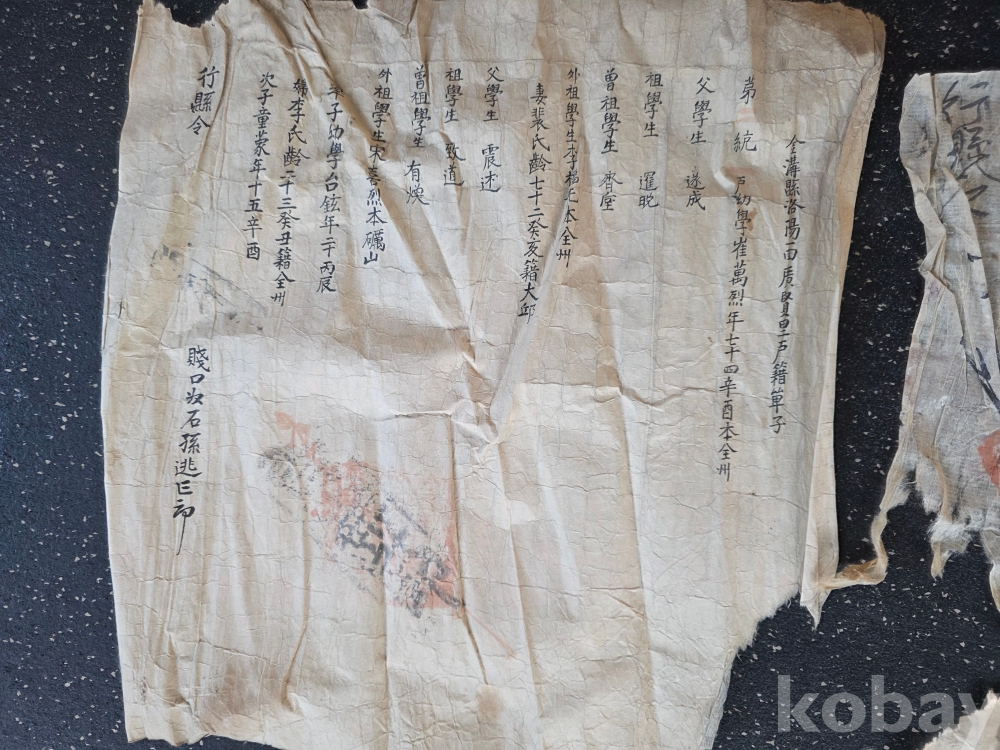 金溝縣洛陽面 賢里戶籍單子
第 統 戶幼學崔萬烈年七十四辛酉本全州
父學生 遂成
祖學生 暹晛
曾祖學生 齊
外祖學生李 本全州
妻裴氏齡七十二癸亥籍大邱
父學生 震述
祖學生 致道
曾祖學生 有煥
外祖學生宋喜烈本礪山
子幼學台鉉年二十丙辰
婦李氏齡二十三癸丑籍全州
次子童蒙年十五辛酉
行縣令
賤口奴石孫逃亡
行縣令
kobay